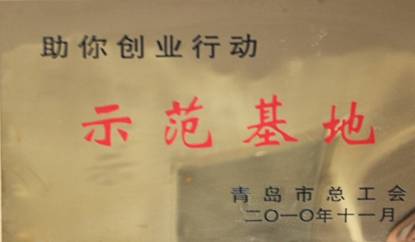 助你创业行动
示范基地
青岛市总工会
二〇一〇年十一月